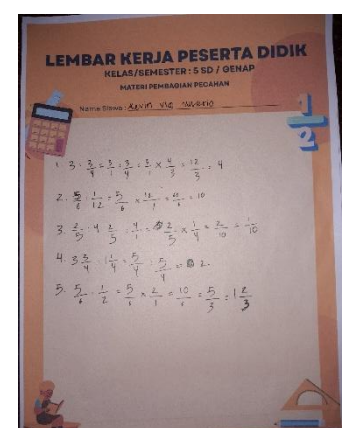 LEMBAR KERJA PESERTA DIDIK
KELAS/SEMESTER : 5 SD / GENAP
MATERI PEMBAGIAN PECAHAN
Nama Siswa : Kevin
1/2
1. 3 : 3/4 = 3/1 : 3/4 = 3/1 × 4/3 = 12/3 = 4
2. 5/6 : 1/12 = 5/6 × 12/1 = 60/6 = 10
3. 2/5 : 4 2/5 : 4/1 = 2/5 × 1/4 = 2/20 = 1/10
4. 3 3/4 : 1 1/4 = 5/4 : 5/4 = 2
5. 5/6 : 1/2 = 5/6 × 2/1 = 10/6 = 5/3 = 1 2/3